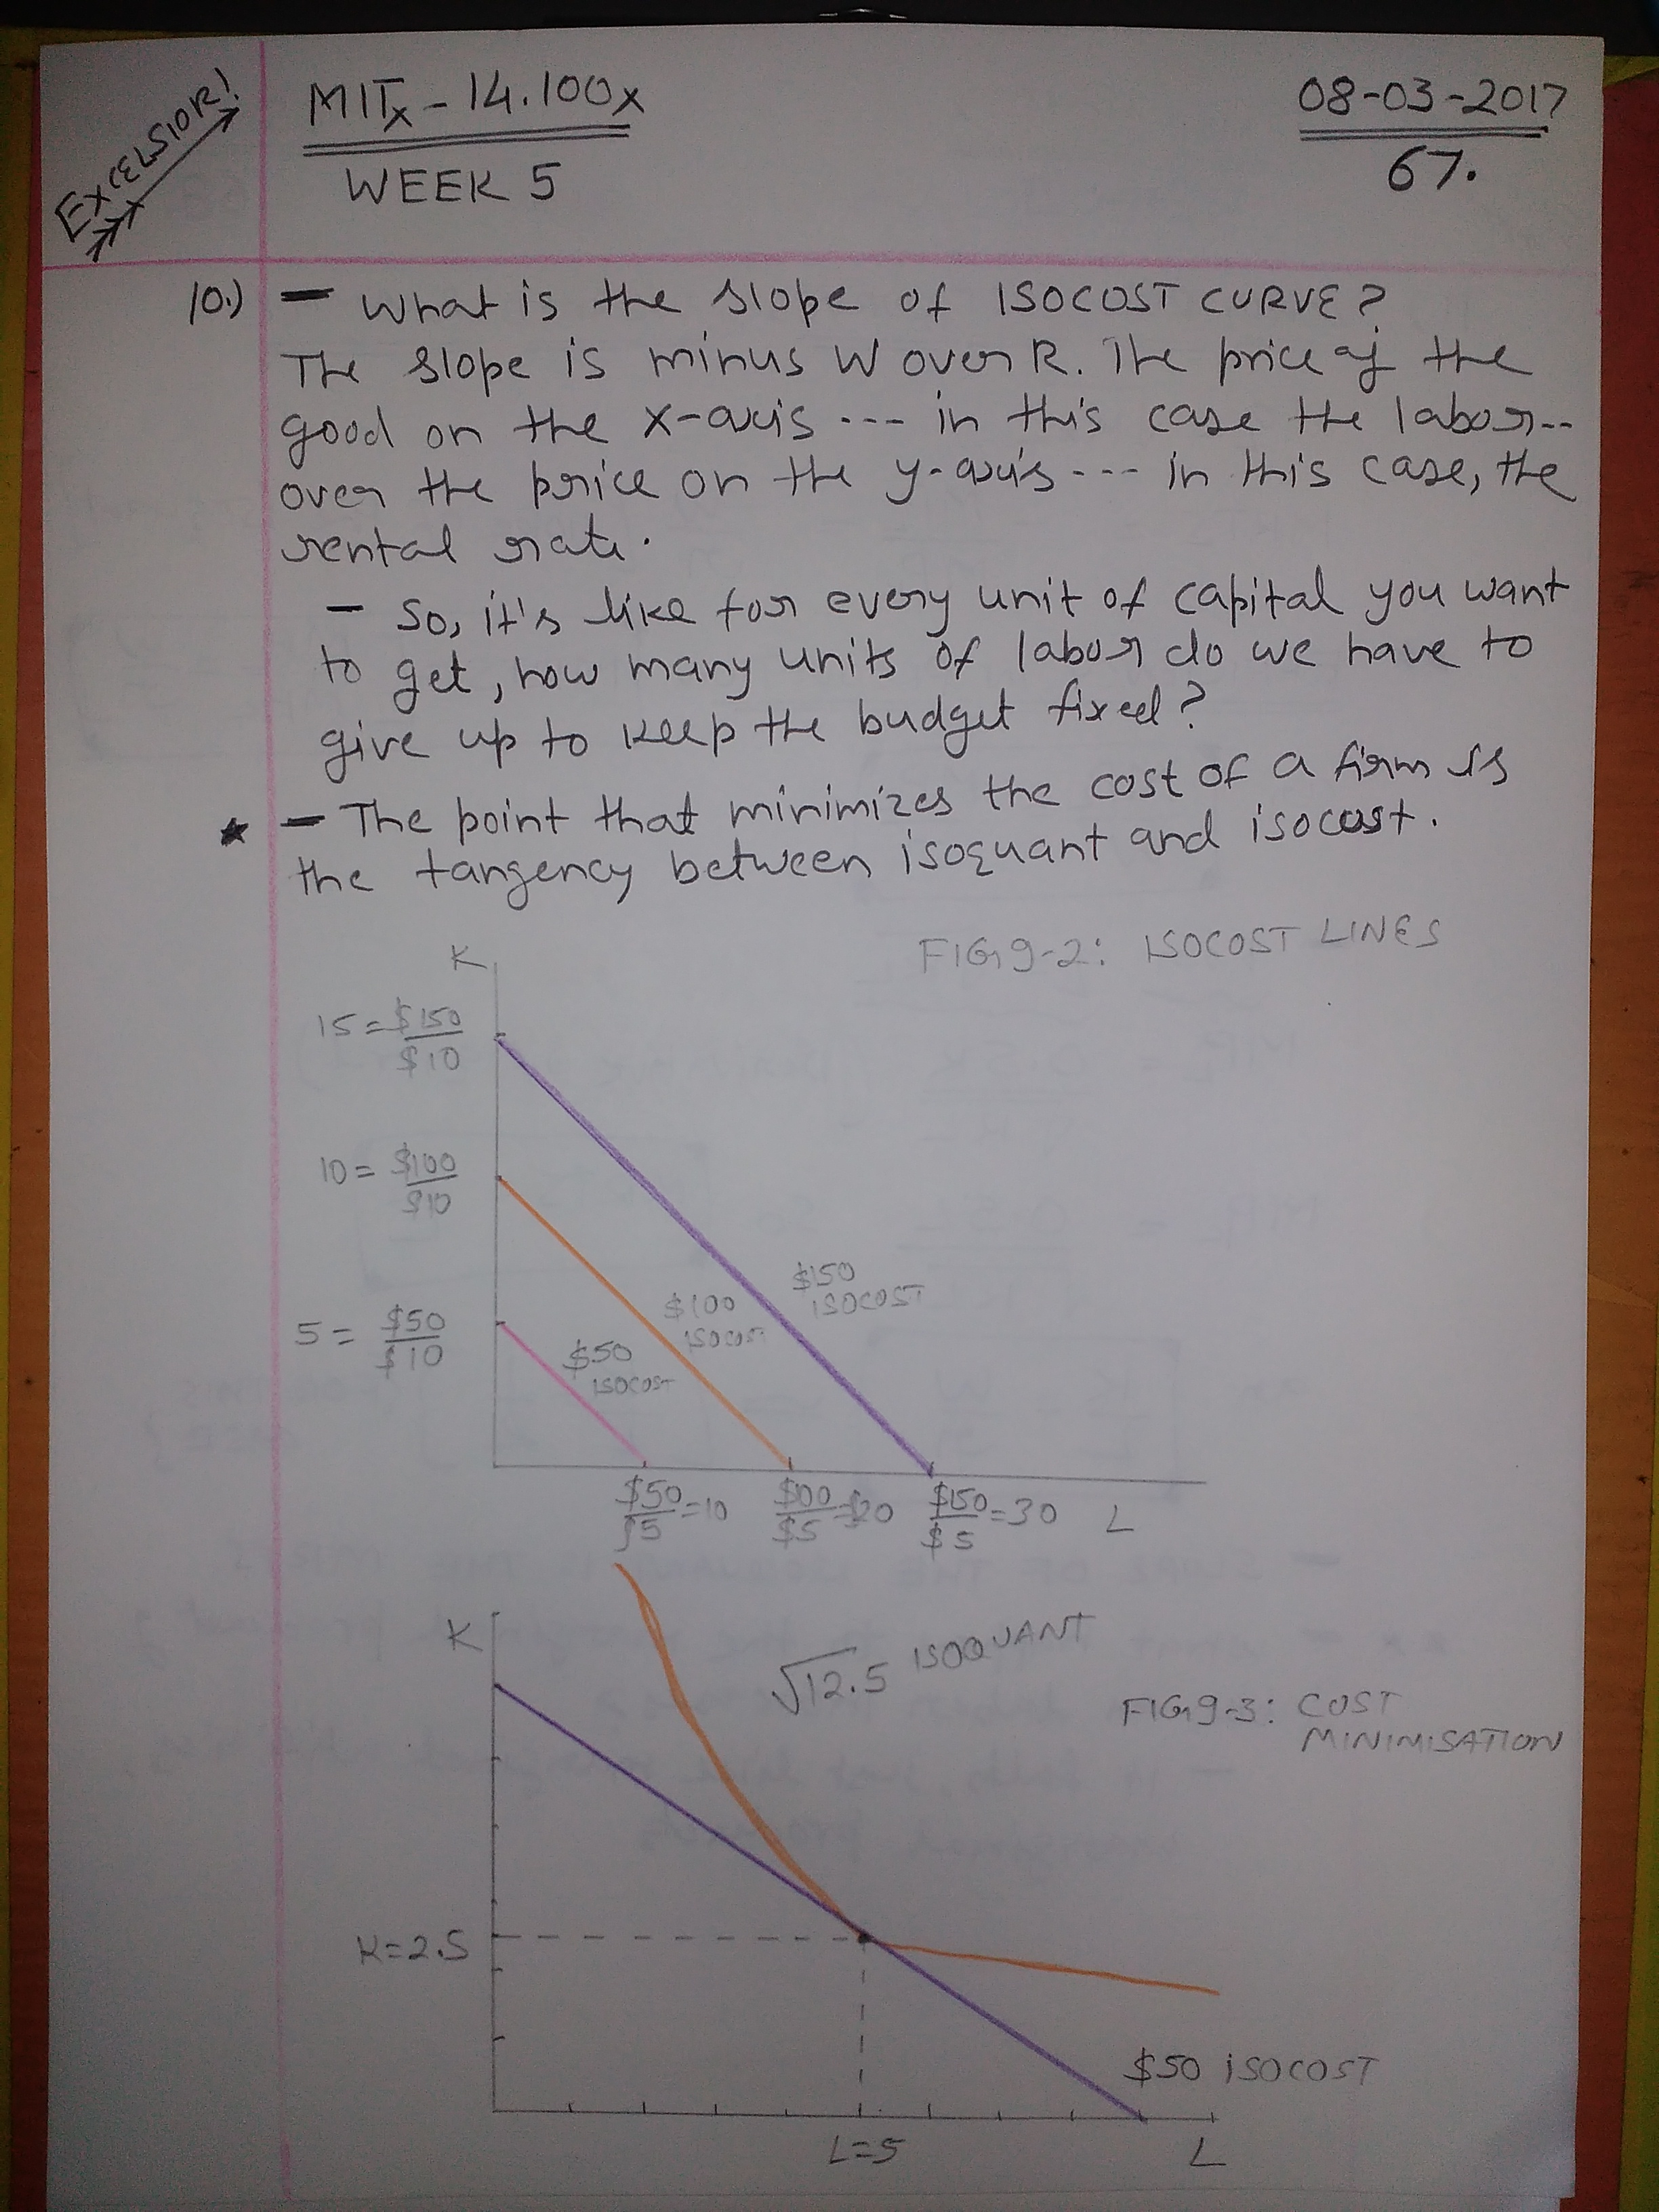 EXCELSIOR!
MITx - 14.100x
WEEK 5
08-03-2017
67.
10.) - What is the slope of ISOCOST CURVE?
The slope is minus W over R. The price of the
good on the x-axis --- in this case the labor--
over the price on the y-axis --- in this case, the
rental rate.
- So, it's like for every unit of capital you want
to get, how many units of labor do we have to
give up to keep the budget fixed?
★ - The point that minimizes the cost of a firm is
the tangency between isoquant and isocost.
FIG 9-2: ISOCOST LINES
K
15 = $150
$10
10 = $100
$10
5 = $50
$10
$150
ISOCOST
$100
ISOCOST
$50
ISOCOST
$50/$5 = 10
$100/$5 = $20
$150/$5 = 30
L
K
√12.5 ISOQUANT
FIG 9-3: COST
MINIMISATION
K=2.5
$50 ISOCOST
L=5
L